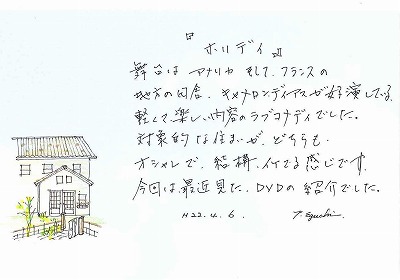 『ホリディ』
舞台は アメリカ そして、フランスの
地方の田舎、キャメロンディアスが好演している、
軽くて、楽しい内容のラブコメディでした。
対象的な住まいが、どちらも
オシャレで、結構、イケてる感じです。
今回は最近見た、DVDの紹介でした。
H22.4.6. T Eguchi.